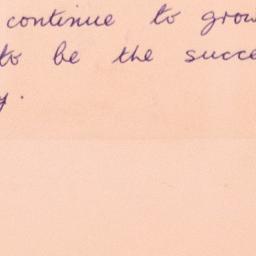 continue to grow
to be the succe
y.